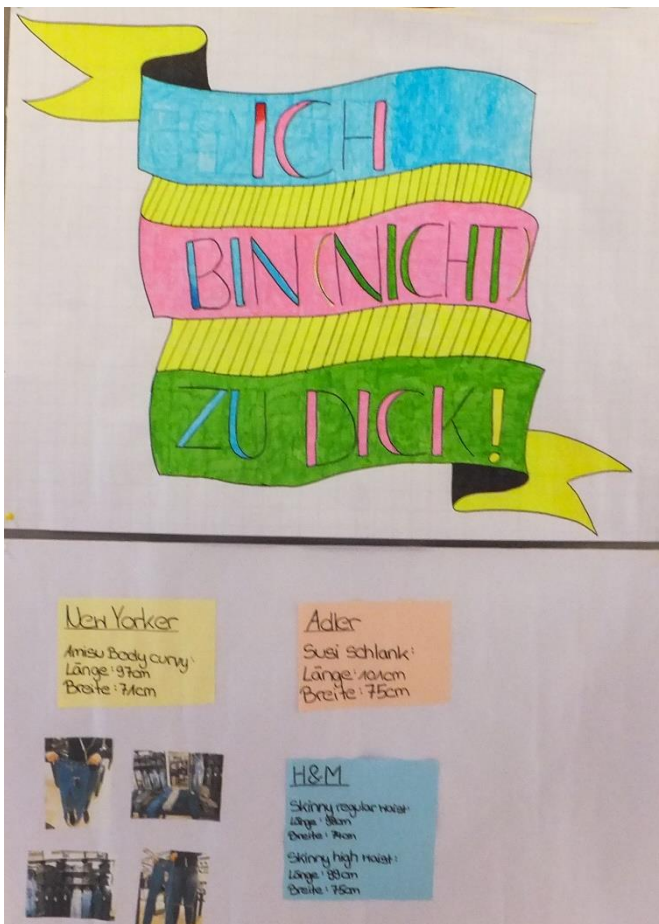 ICH
BIN (NICHT)
ZU DICK!
New Yorker
Amisu Body curvy:
Länge: 97cm
Breite: 71cm
Adler
Susi Schlank:
Länge: 101cm
Breite: 75cm
H&M
Skinny regular waist:
Länge: 98cm
Breite: 74cm
Skinny high waist:
Länge: 99cm
Breite: 75cm